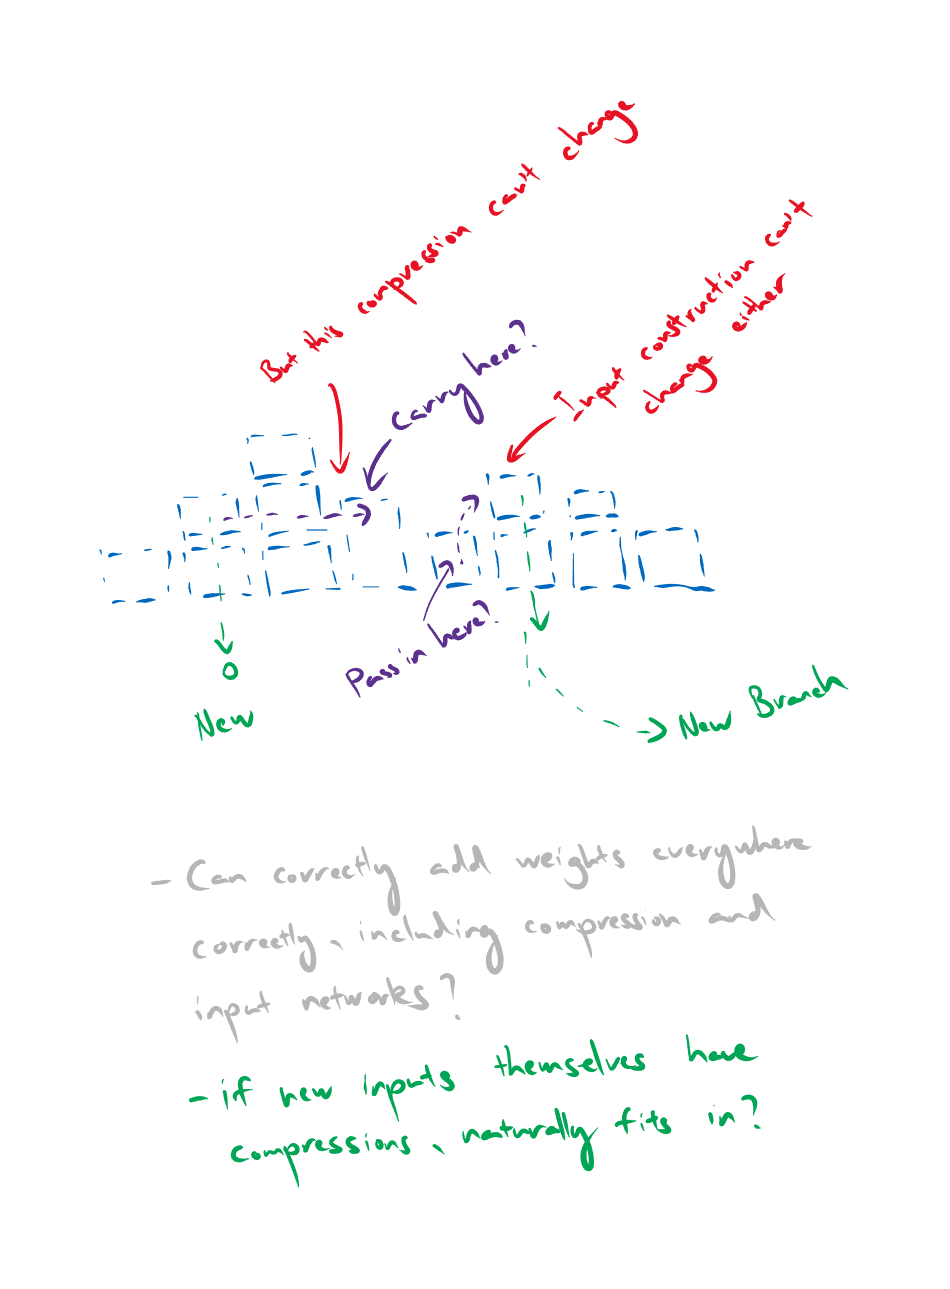 But this compression can't change
Input construction can't
change either
Carry here?
Pass in here?
New
New Branch
- Can correctly add weights everywhere
correctly, including compression and
input networks?
- if new inputs themselves have
compressions, naturally fits in?